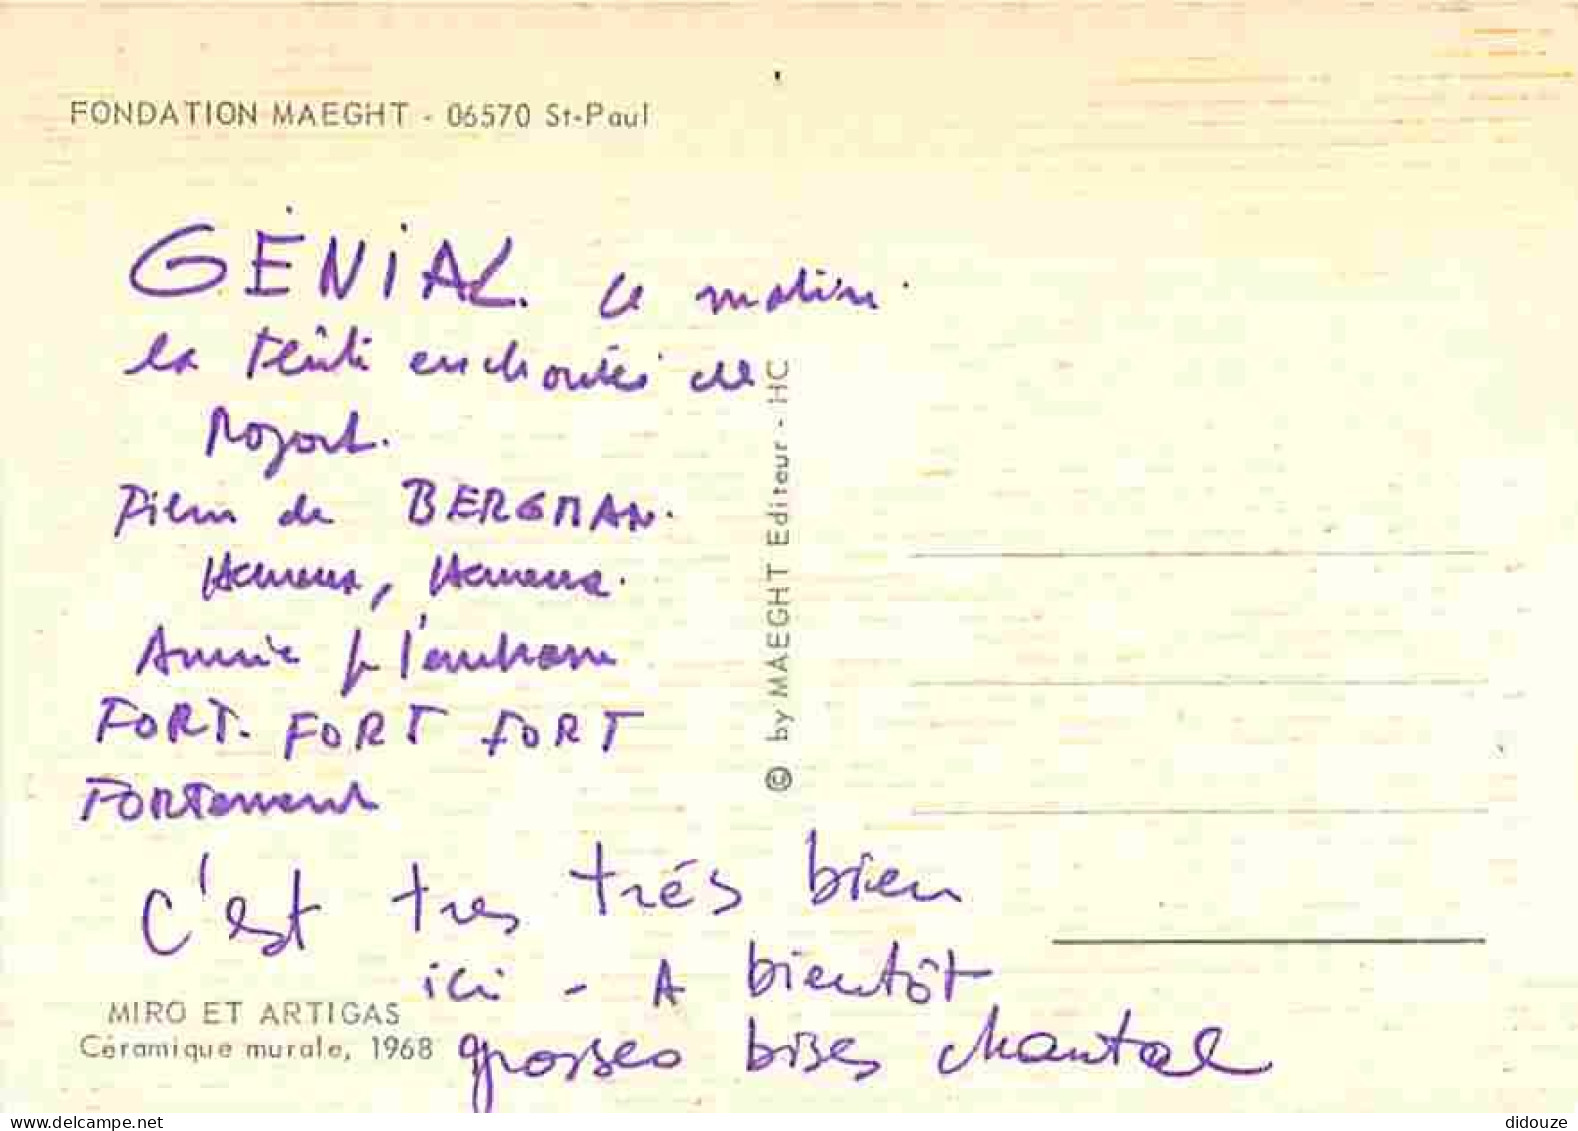 FONDATION MAEGHT - 06570 St-Paul
GÉNIAL. Ce matin.
la flûte enchantée de
Mozart.
Film de BERGMAN.
Hummm, Hummm.
Annie je t'embrasse
FORT. FORT FORT
FORTement
C'est tres trés bien
ici - A bientôt
grosses bises chantal
MIRO ET ARTIGAS
Céramique murale, 1968
© by MAEGHT Editeur - HC
www.delcampe.net
didouze